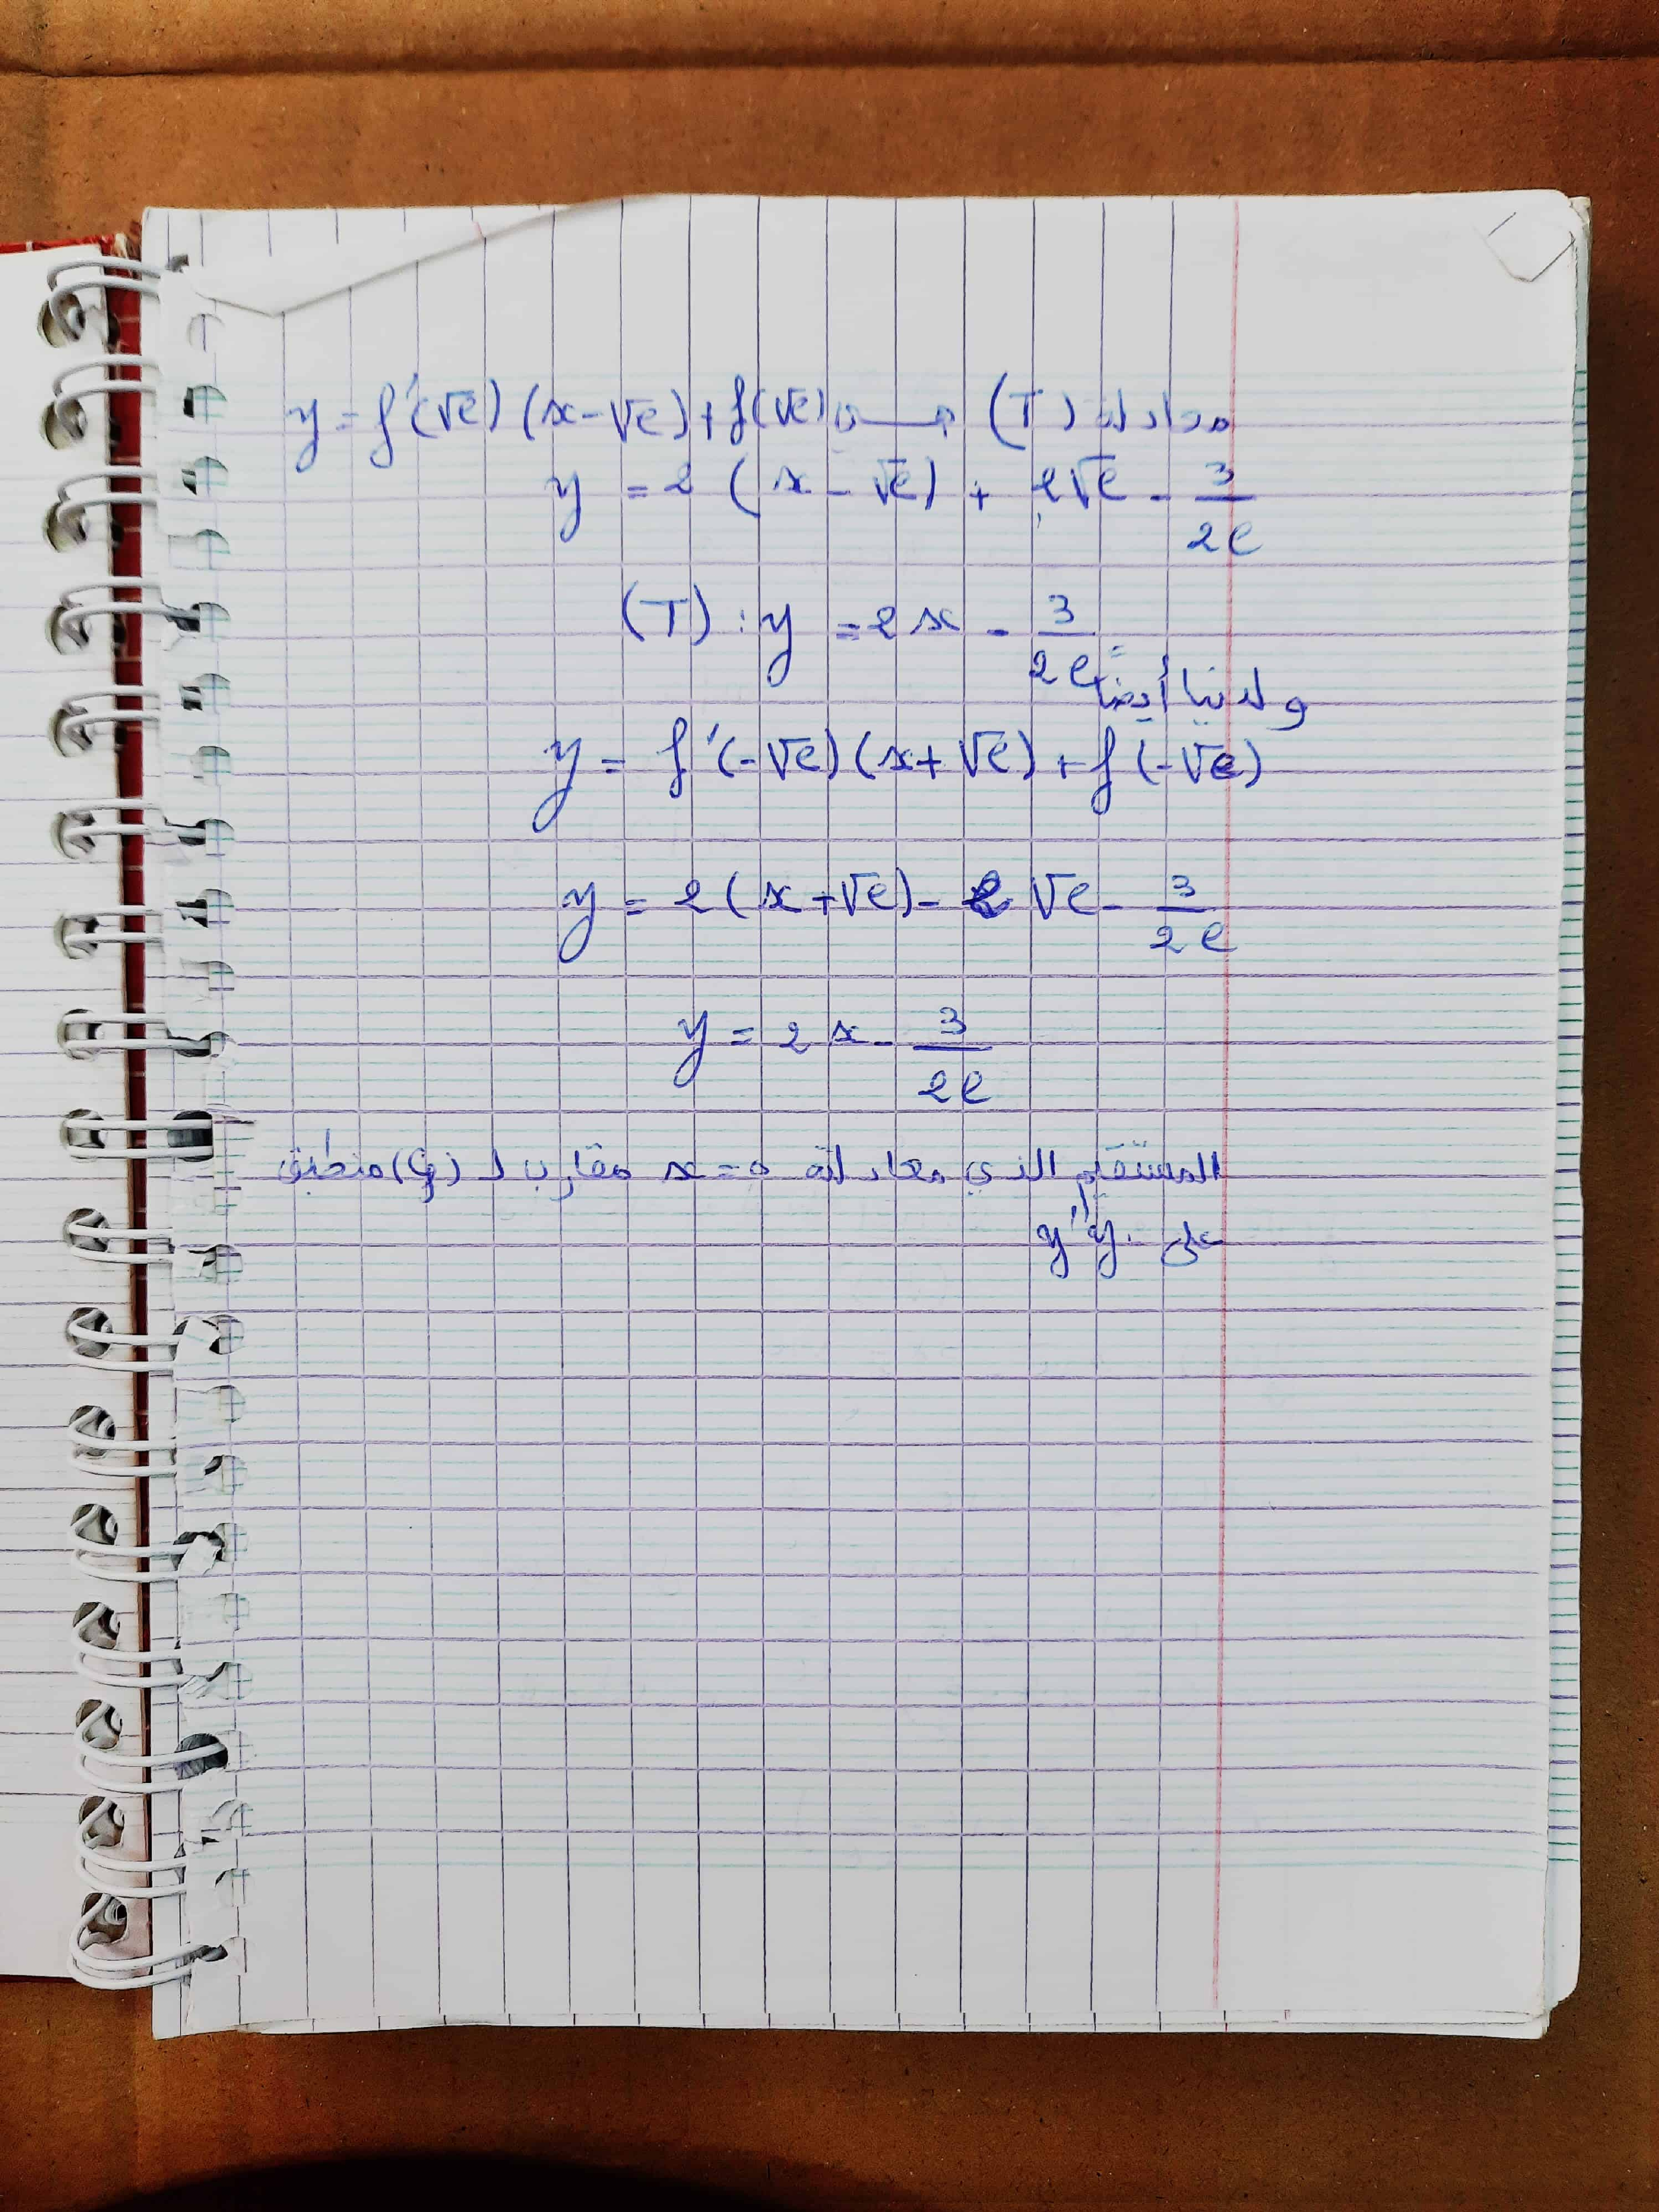 معادلة (T) هي y = f'(√e) (x-√e) + f(√e)
y = 2 (x - √e) + 2√e - 3/2e
(T) : y = 2x - 3/2e
ولدينا أيضا
y = f'(-√e) (x+√e) + f(-√e)
y = 2(x+√e) - 2√e - 3/2e
y = 2x - 3/2e
المستقيم الذي معادلته x=0 مقارب لـ (Cf) منطبق
على y'y.